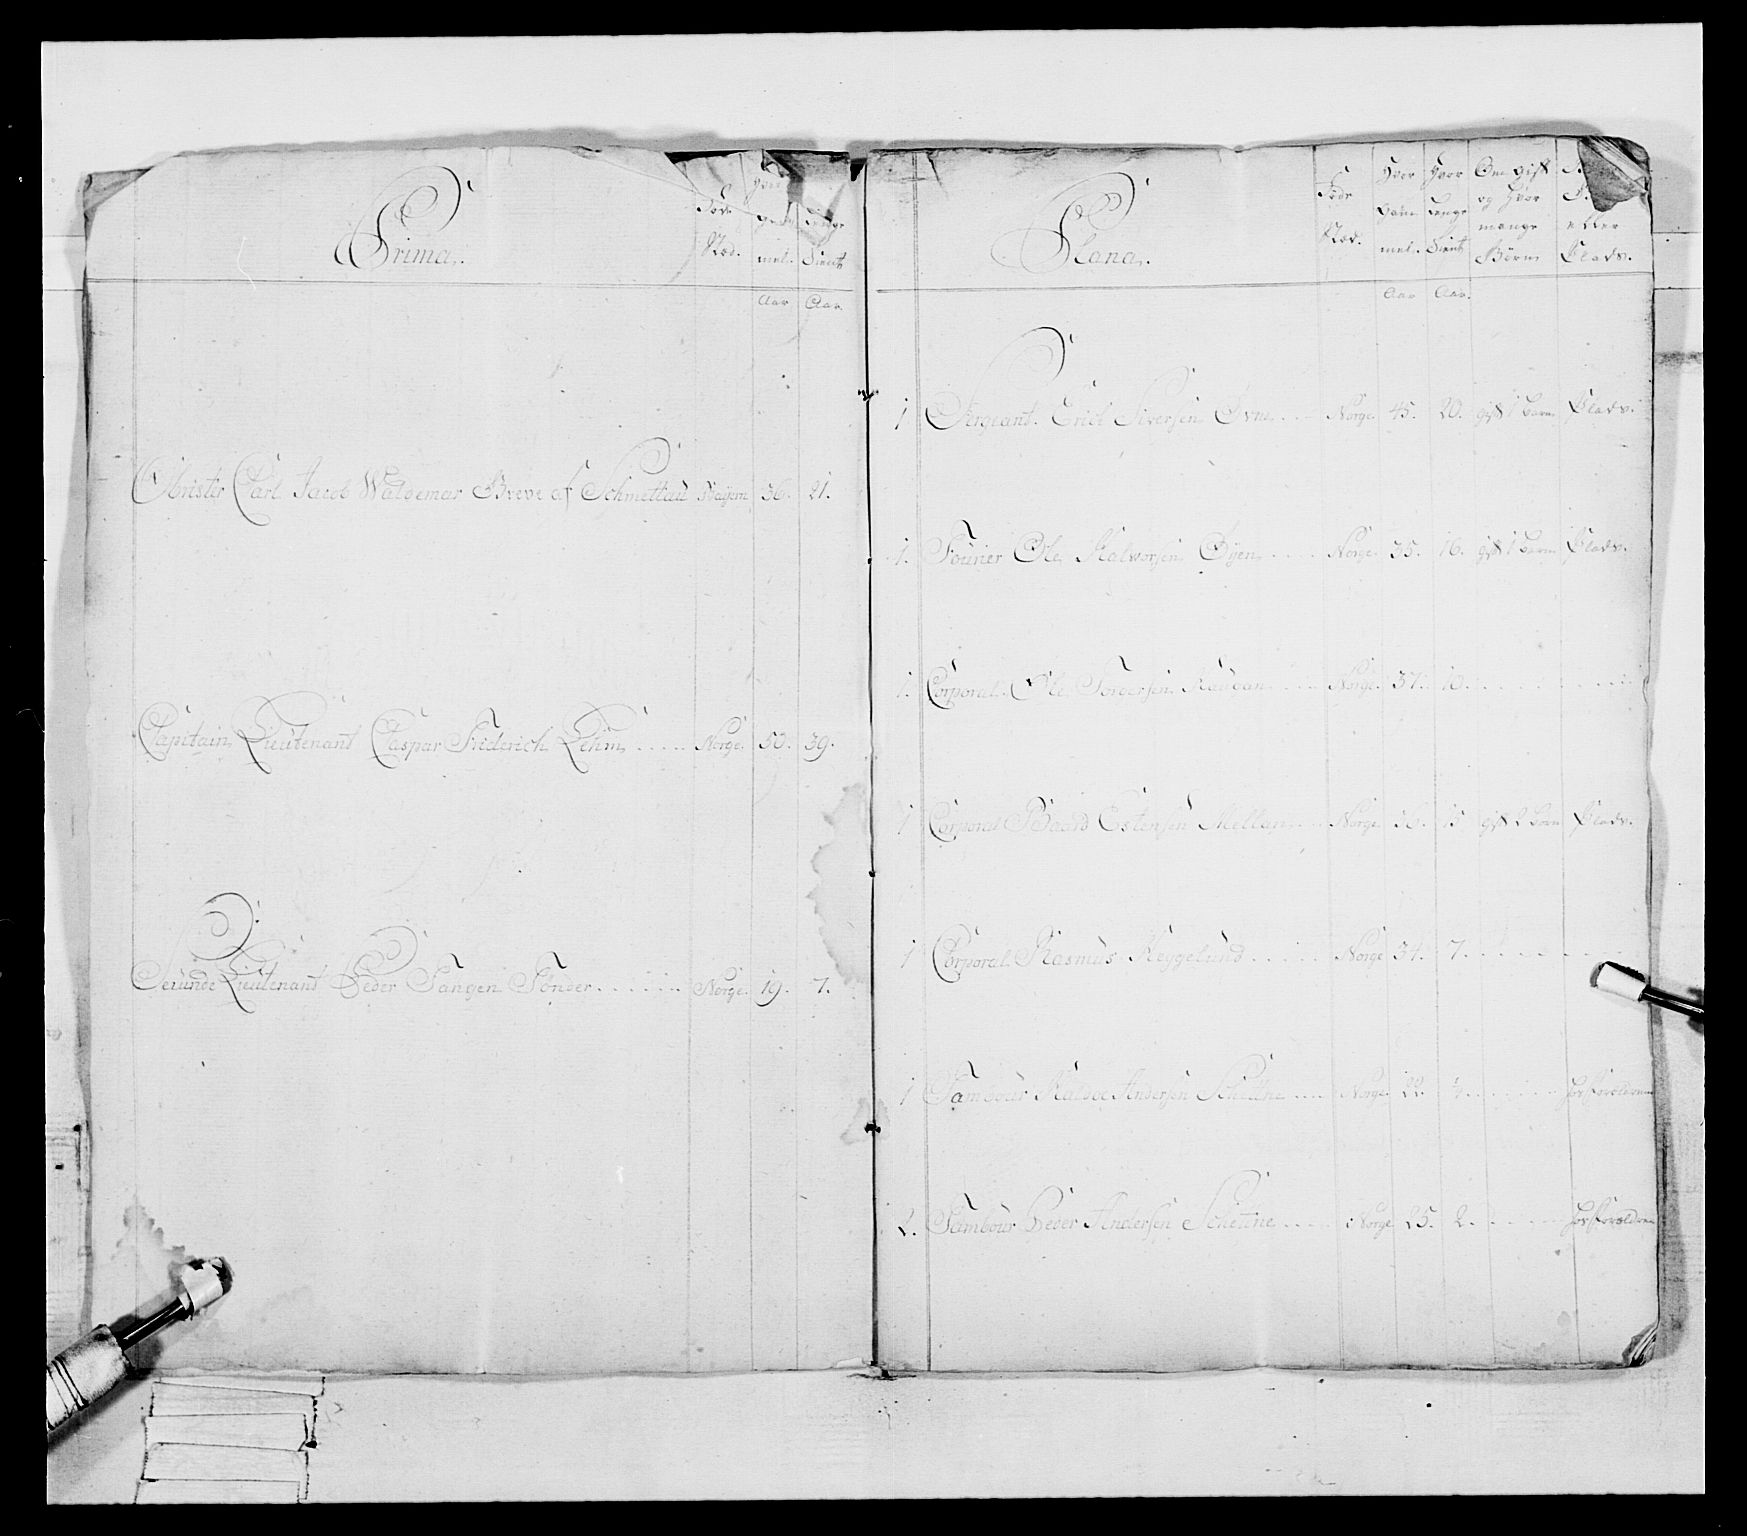 Prima.
Føde
Stæd.
Hvor
gam
mel.
Længe
Tient
Aar
Aar.
Obrister Carl Jacob Waldemar Greve af Schmettau Bayern 36. 21.
Capitain Lieutenant Caspar Friderich Lehm Norge. 50. 39.
Secunde Lieutenant Peder Tangen Tønder Norge. 19. 7.
Plana.
Føde
Stæd.
Hvor
Gam
mel.
Hvor
Længe
Tient
Om gift
og hvor
mange
Børn
eller
Pladv.
Aar
Aar.
1 Sergeant Erich Siversen Øvne Norge 45. 20. gift 1 barn Pladv.
1. Fourier Ole Halvorsen Øyen Norge. 35. 16. gift 1 barn Pladv.
1. Corporal Ole Tordersen Haugan Norge. 37. 10.
1 Corporal Baard Estensen Mellan Norge 36. 15 gift 2 børn Pladv.
1 Corporal Rasmus Heggelund Norge 34. 7.
1 Tambour Haldoe Andersen Schettne Norge. 22. hos forældrene
2. Tambour Peder Andersen Schettne Norge 25. 2. hos forældrene